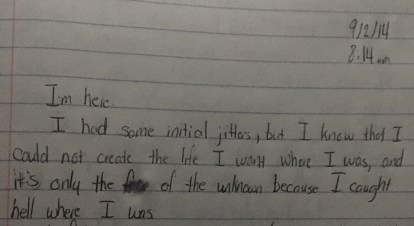 9/2/14
8:14 am
I'm here
I had some initial jitters, but I know that I
could not create the life I want where I was, and
it's only the of the unknown because I caught
hell where I was